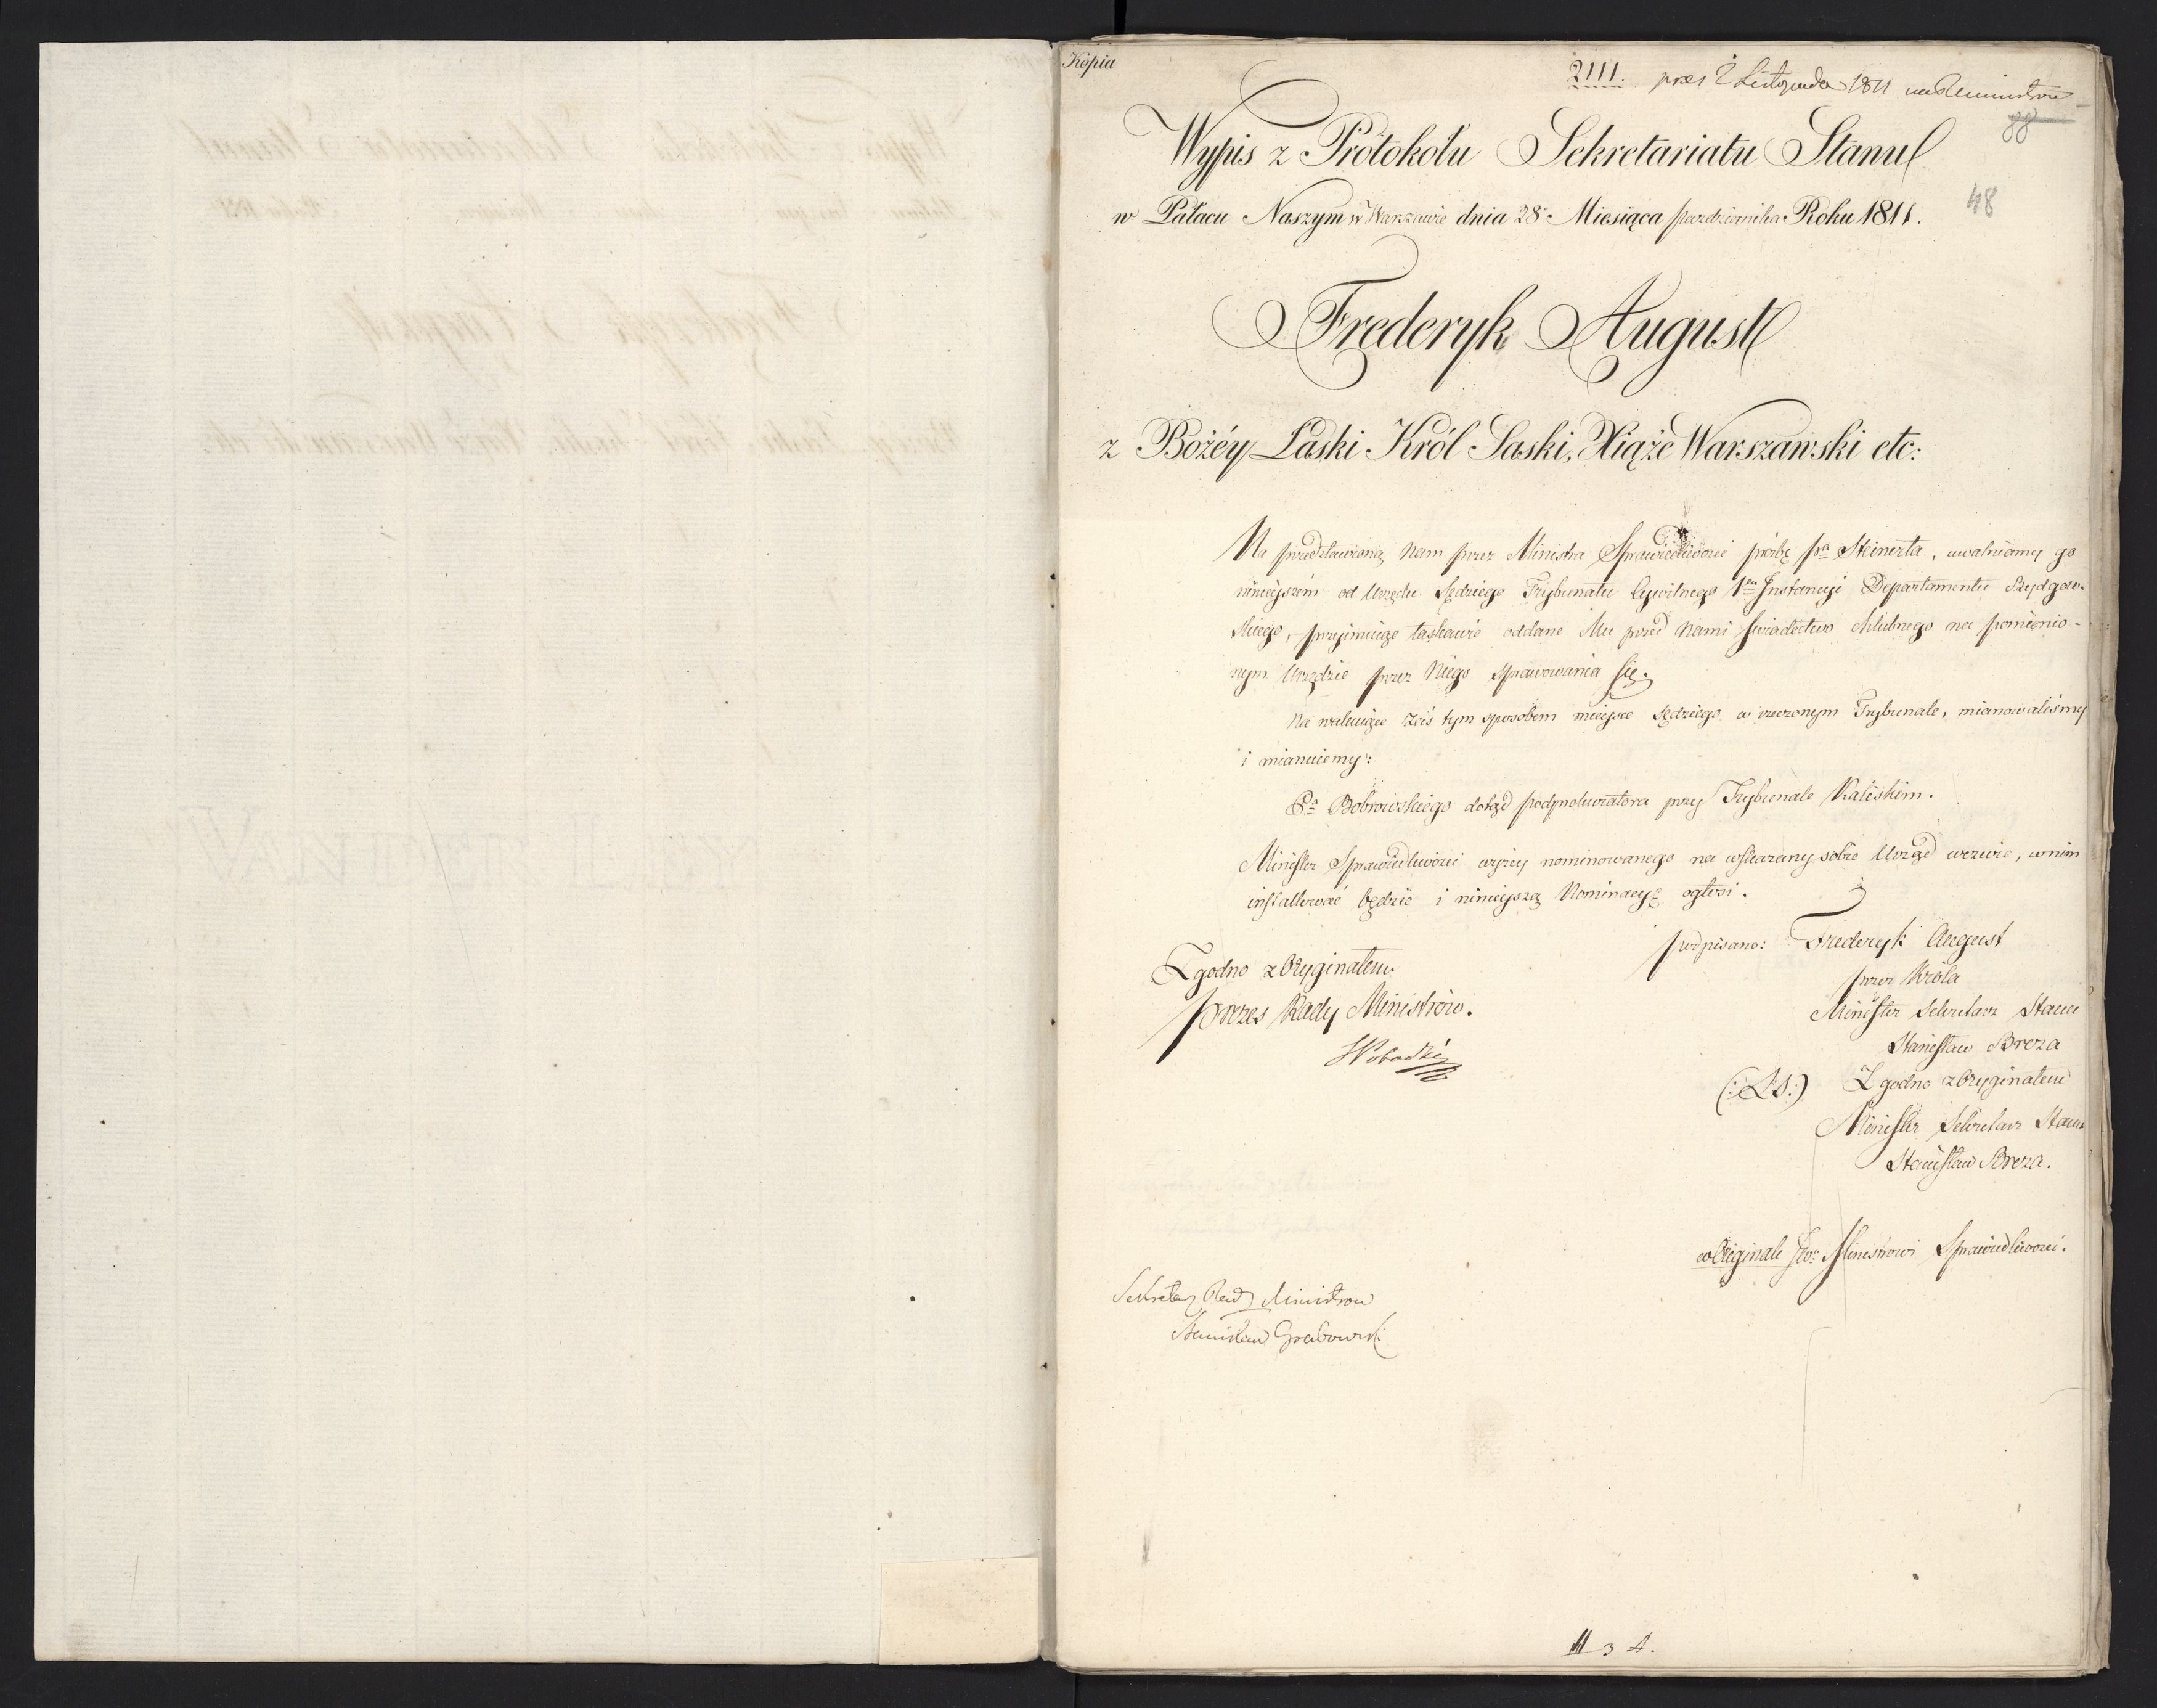 Kopia
2111. prez 2 Listopada 1811 Ministrow
88
Wypis z Protokołu Sekretariatu Stanu
48
w Pałacu Naszym w Warszawie dnia 28o Miesiąca Pazdziernika Roku 1811.
Frederyk August
z Bożéy Łaski Król Saski, Xiąże Warszawski etc:
Na przedstawioną Nam przez Ministra Sprawiedliwości prozbę Pa Steinerta, uwalniamy go
ninieyszém od Urzędu Sędziego Trybunału Cywilnego 1ey Instancyi Departamentu Bydgow-
skiego, przyimuiąc łaskawie oddane Mu przed Nami świadectwo chlubnego na pomienio-
nym Urzędzie przez Niego sprawowania się.
Na wakuiące zaś tym sposobem mieysce Sędziego w rzeczonym Trybunale, mianowaliśmy
i mianuiemy:
Pa Bobrowskiego dotąd Podprokuratora przy Trybunale Kaliskim.
Minister Sprawiedliwości wyżey nominowanego na wskazany sobie Urząd wezwie, w nim
installować będzie i ninieyszą Nominacyę ogłosi.
podpisano: Frederyk August
przez Króla
Minister Sekretarz Stanu
Stanisław Breza
(:L.S.:) Zgodno z Oryginałem
Minister Sekretarz Stanu
Stanisław Breza.
Zgodno z Oryginałem
Prezes Rady Ministrów.
w Originale Ministrowi Sprawiedliwości.
Sekretarz Rady Ministrow
Stanisław Grabowski
3 4.